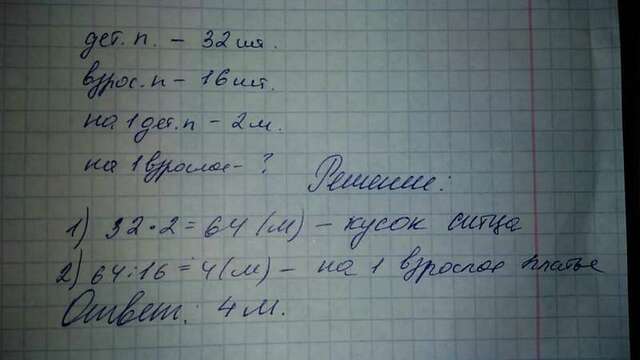 дет. п. – 32 шт.
взрос. п – 16 шт.
на 1 дет. п – 2 м.
на 1 взрослое – ?
Решение:
1) 32 · 2 = 64 (м) – кусок ситца
2) 64 : 16 = 4 (м) – на 1 взрослое платье
Ответ: 4 м.